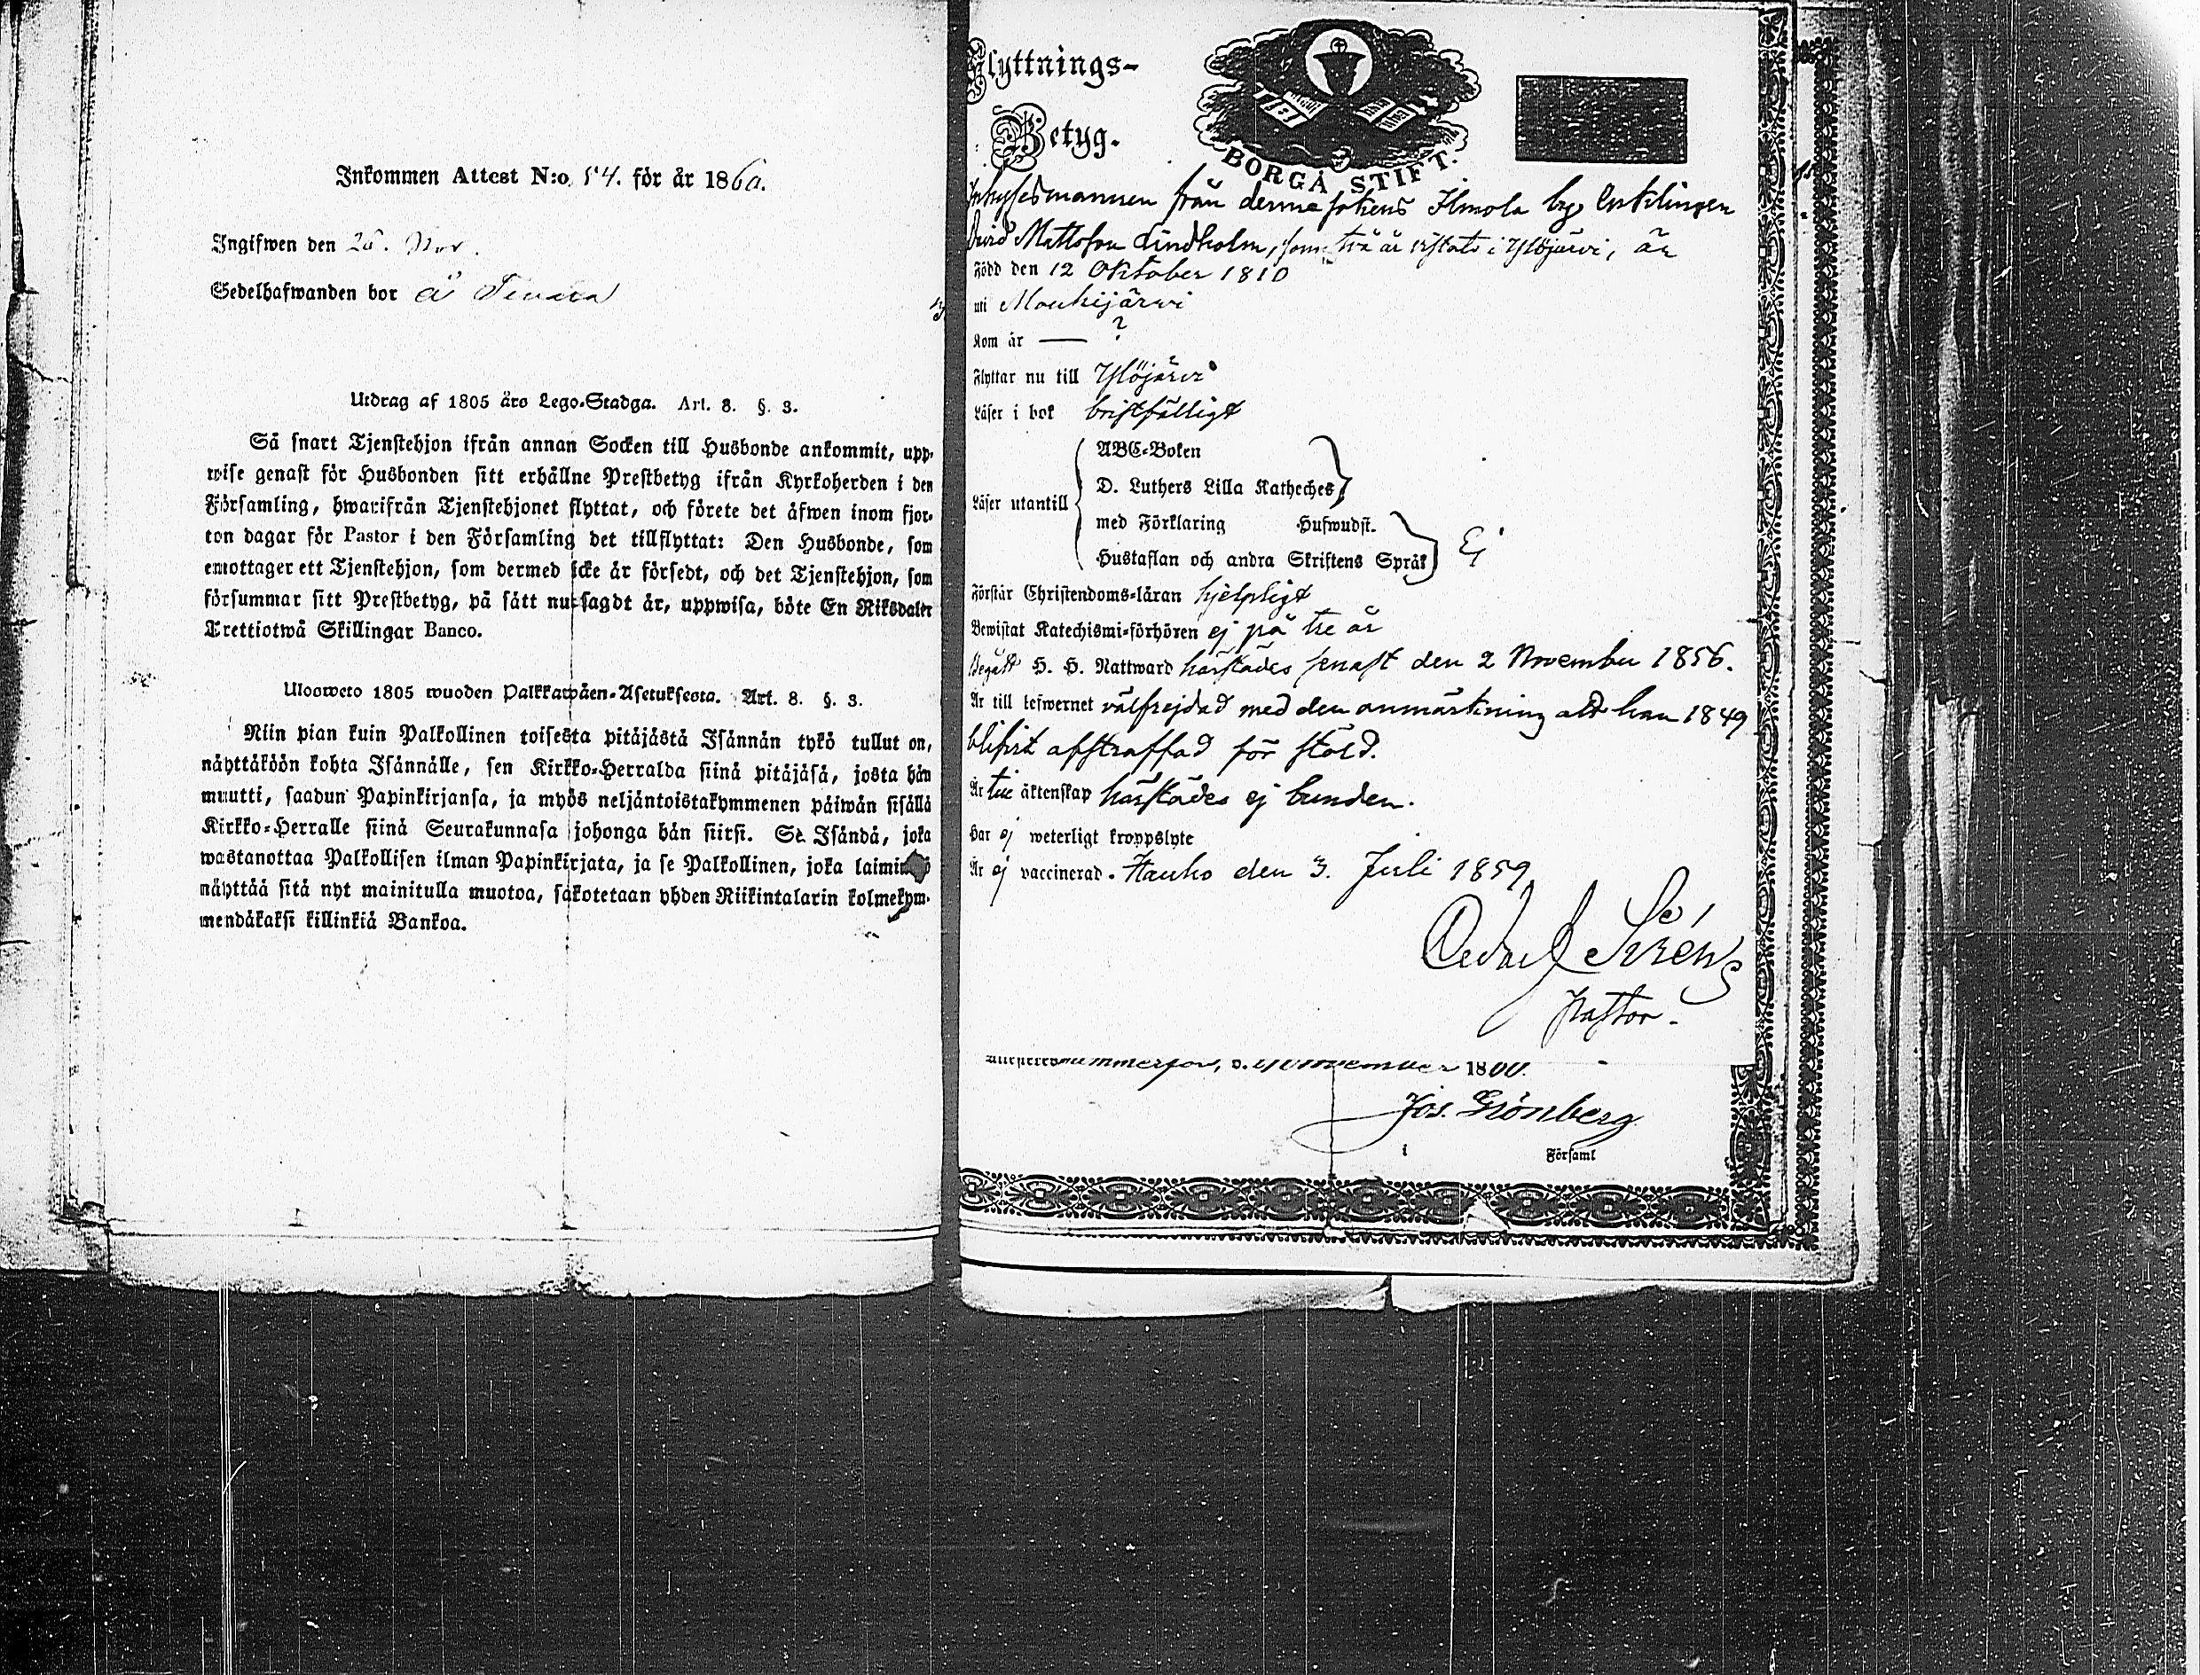 Inkommen Attest N:o 54. för år 1860.
Ingifwen den 25. Nov.
Sedelhafwanden bor å
Utdrag af 1805 års Lego-Stadga. Art. 8. §. 3.
Så snart Tjenstehjon ifrån annan Socken till Husbonde ankommit, upp-
wise genast för Husbonden sitt erhållne Prestbetyg ifrån Kyrkoherden i den
Församling, hwarifrån Tjenstehjonet flyttat, och förete det äfwen inom fjor-
ton dagar för Pastor i den Församling det tillflyttat: Den Husbonde, som
emottager ett Tjenstehjon, som dermed icke är försedt, och det Tjenstehjon, som
försummar sitt Prestbetyg, på sätt nu sagdt är, uppwisa, böte En Riksdaler
Trettiotwå Skillingar Banco.
Ulosweto 1805 wuoden Palkkawäen-Asetuksesta. Art. 8. §. 3.
Niin pian kuin Palkollinen toisesta pitäjästä Isännän tykö tullut on,
näyttäköön kohta Isännälle, sen Kirkko-Herralda siinä pitäjäsä, josta hän
muutti, saadun Papinkirjansa, ja myös neljäntoistakymmenen päiwän sisällä
Kirkko-Herralle siinä Seurakunnasa johonga hän siirsi. Se Isändä, joka
wastanottaa Palkollisen ilman Papinkirjata, ja se Palkollinen, joka
näyttää sitä nyt mainitulla muotoa, sakotetaan yhden Riikintalarin kolmekym-
mendäkaksi killinkiä Bankoa.
Flyttnings-
Betyg.
BORGÅ STIFT.
Inhysesmannen från denne sokens Ilmola by, enklingen
David Mattsson Lindholm, som två år vistats i Ylöjärvi, är
Född den 12 Oktober 1810
uti Mouhijärwi
Kom år — ?
Flyttar nu till Ylöjärvi
Läser i bok bristfälligt
Läser utantill
ABC-Boken
D. Luthers Lilla Katheches
med Förklaring Hufwudst.
Hustaflan och andra Skriftens Språk
Ej
Förstår Christendoms-läran hjelpligt
Bewistat Katechismi-förhören ej på tre år
Begått H. H. Nattward härstädes senast den 2 November 1856.
Är till lefwernet välfrejdad med den anmärkning att han 1849
blifvit afstraffad för stöld.
Är till äktenskap härstädes ej bunden.
Har ej weterligt kroppslyte
Är ej vaccinerad. Hauho den 3. Juli 1859
Sirén
Pastor.
Jos. Grönberg
Församl